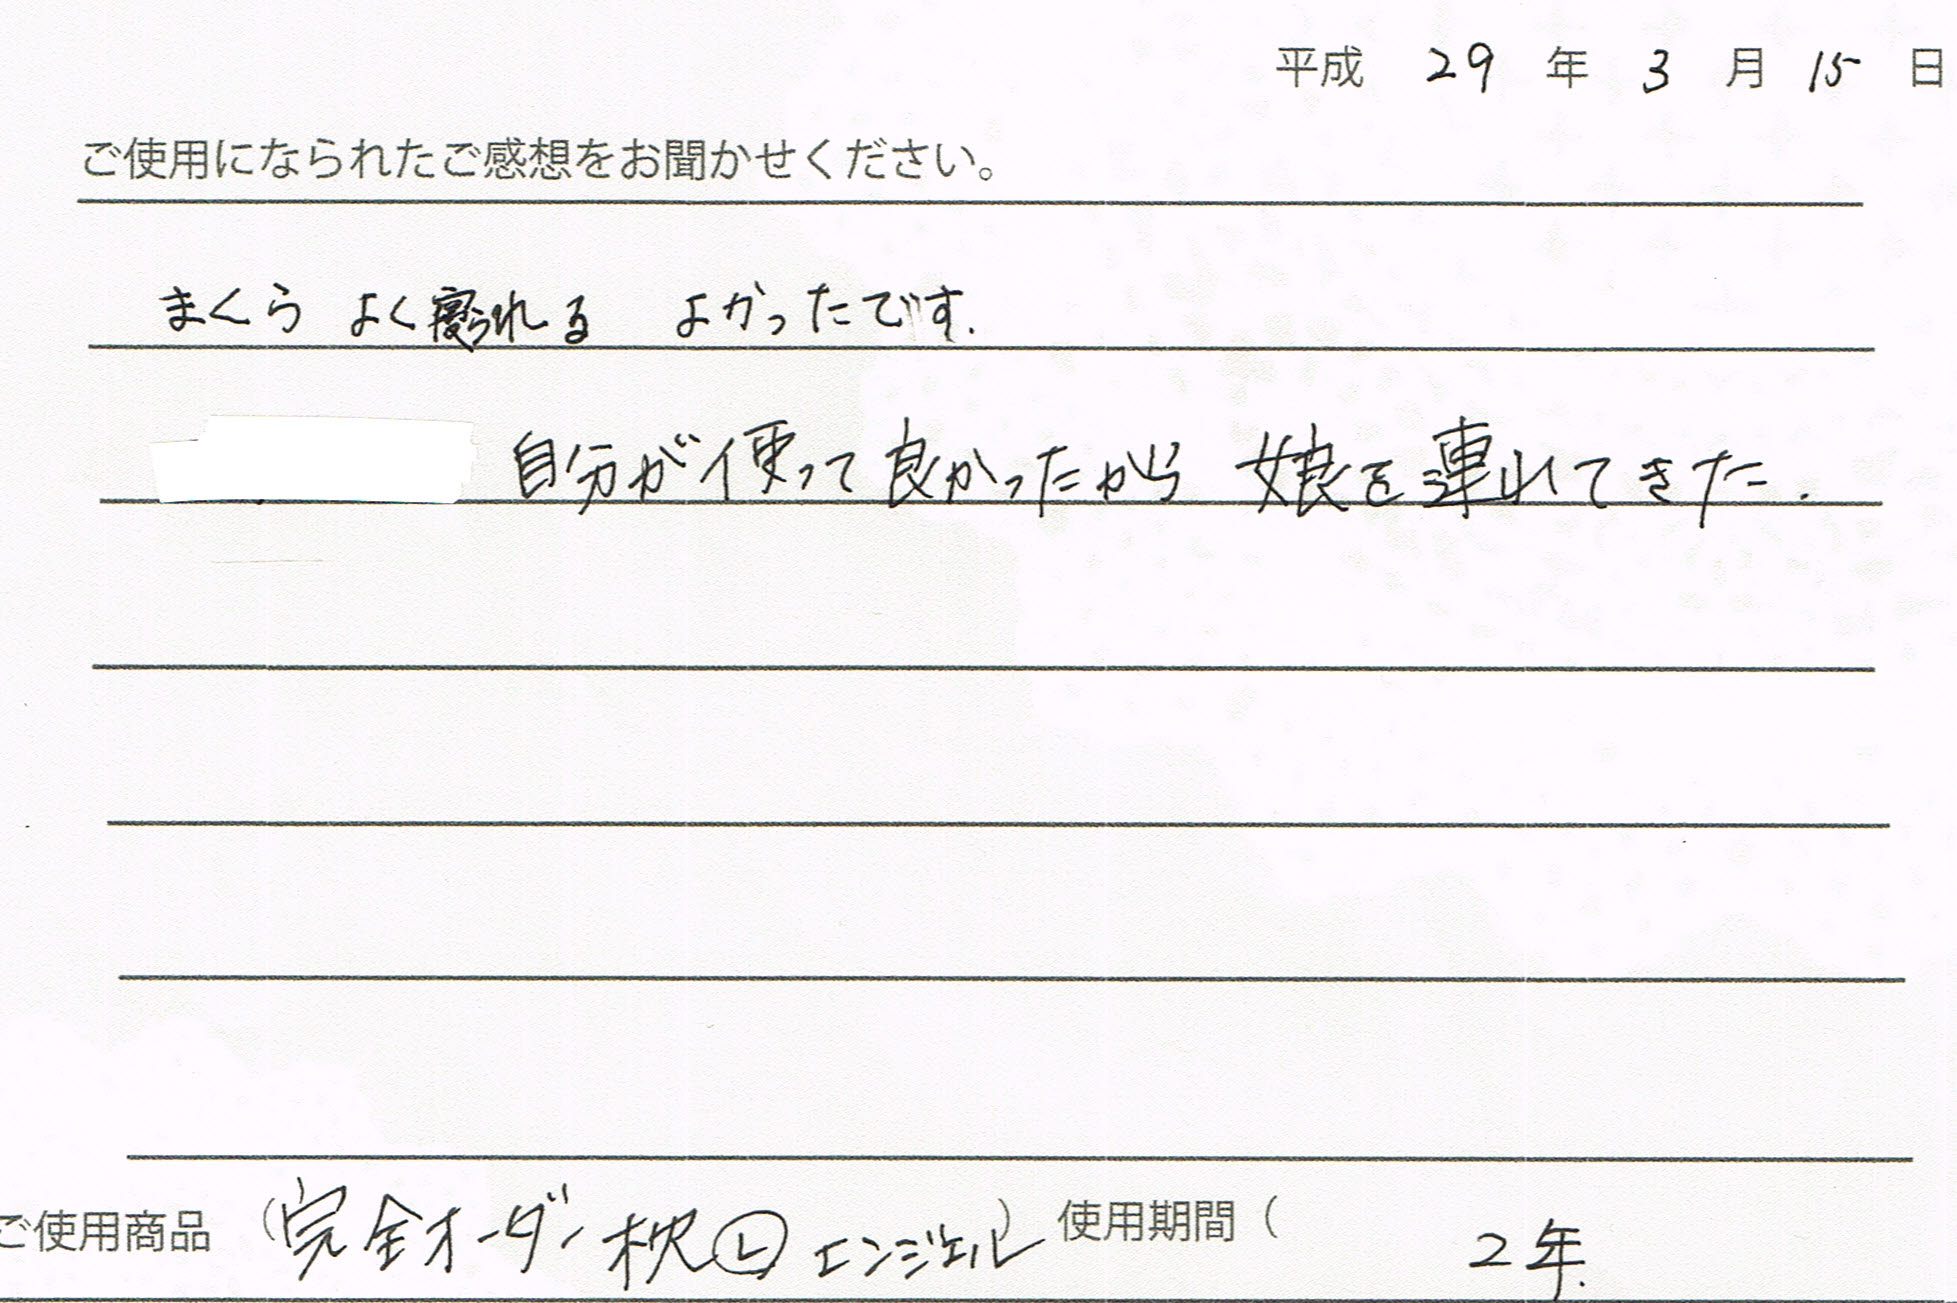 平成 29 年 3 月 15 日
ご使用になられたご感想をお聞かせください。
まくら よく寝られる よかったです.
自分が使って良かったから 娘を連れてきた.
ご使用商品 (完全オーダー枕Ⓛエンジェル) 使用期間 ( 2年.